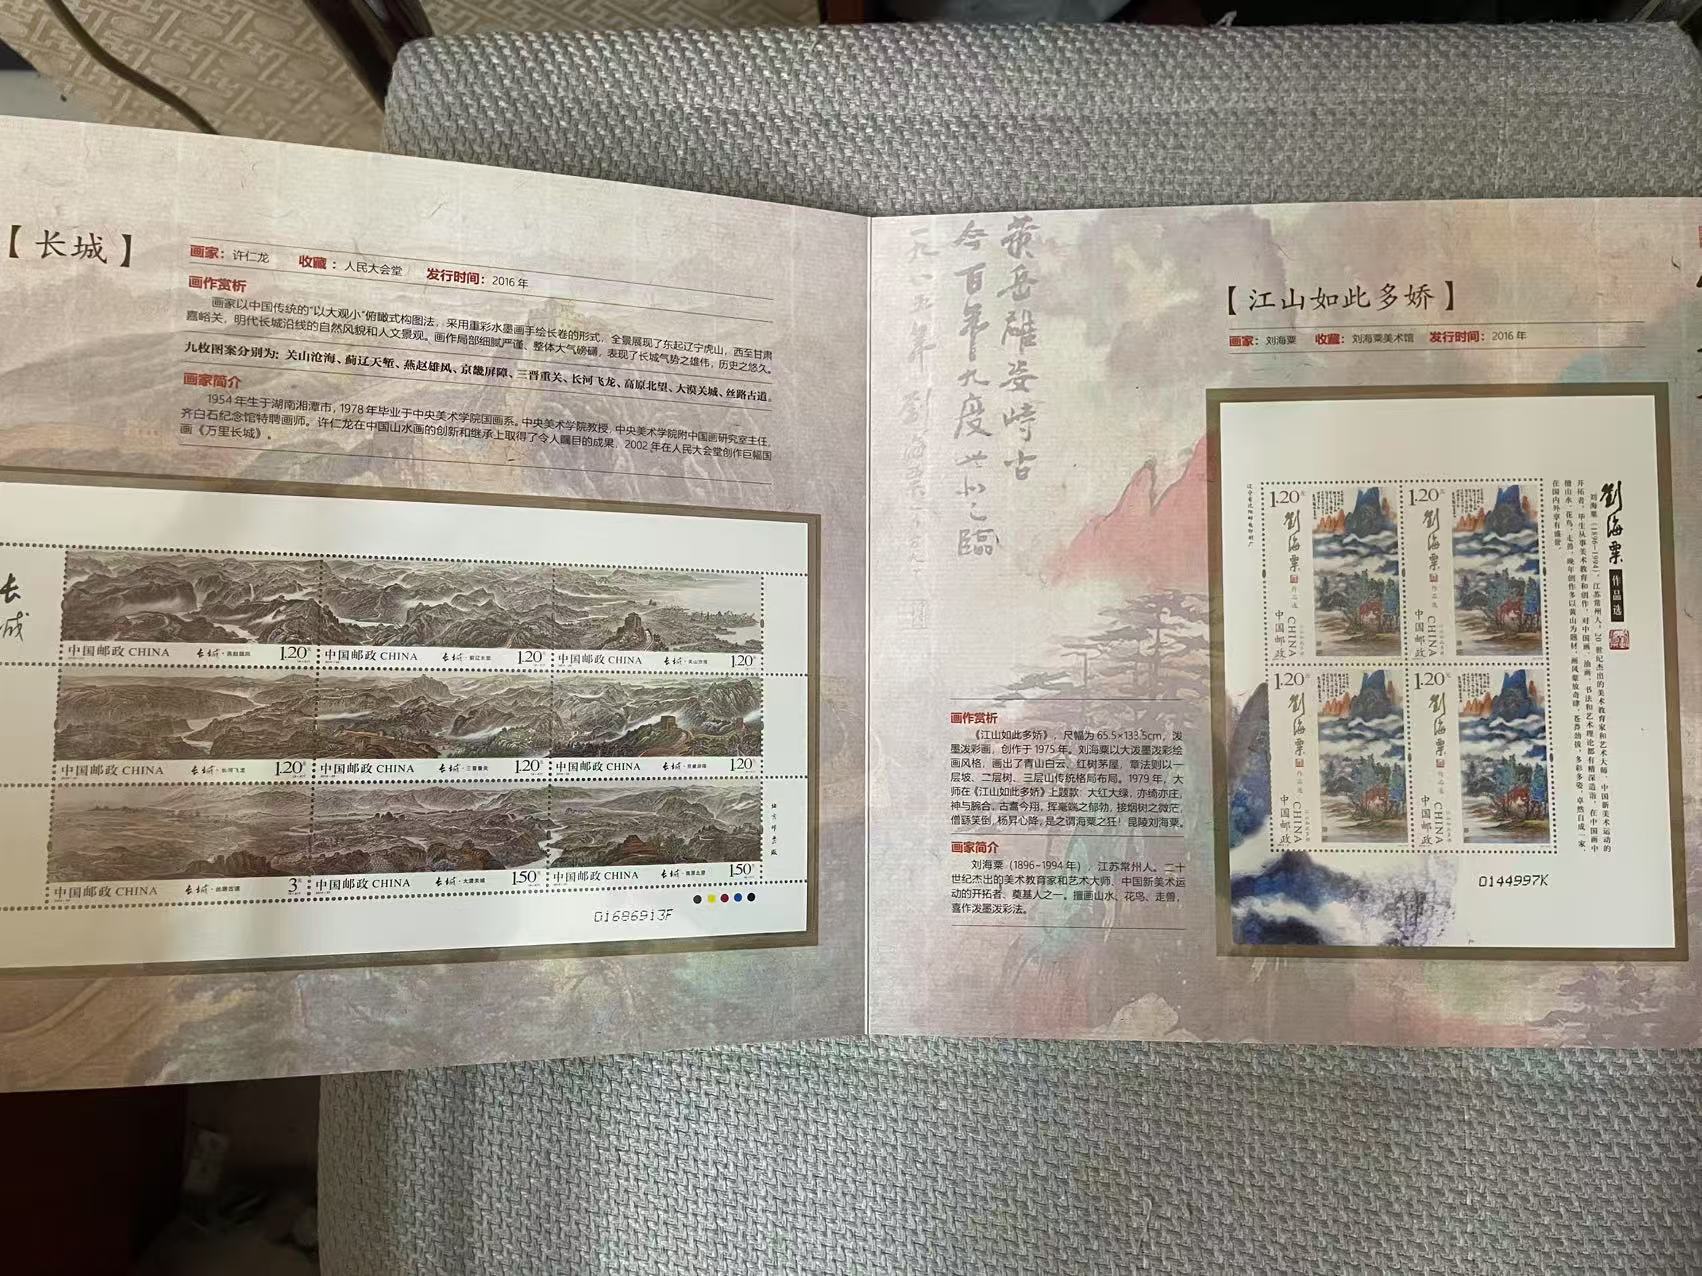 【长城】
画家：许仁龙 收藏：人民大会堂 发行时间：2016 年
画作赏析
画家以中国传统的“以大观小”俯瞰式构图法，采用重彩水墨画手绘长卷的形式，全景展现了东起辽宁虎山，西至甘肃
嘉峪关，明代长城沿线的自然风貌和人文景观。画作局部细腻严谨、整体大气磅礴，表现了长城气势之雄伟，历史之悠久。
九枚图案分别为：关山沧海、蓟辽天堑、燕赵雄风、京畿屏障、三晋重关、长河飞龙、高原北望、大漠关城、丝路古道。
画家简介
1954 年生于湖南湘潭市，1978 年毕业于中央美术学院国画系。中央美术学院教授，中央美术学院附中国画研究室主任，
齐白石纪念馆特聘画师。许仁龙在中国山水画的创新和继承上取得了令人瞩目的成果，2002 年在人民大会堂创作巨幅国
画《万里长城》。
长城
中国邮政 CHINA 长城·燕赵雄风 1.20元
中国邮政 CHINA 长城·蓟辽天堑 1.20元
中国邮政 CHINA 长城·关山沧海 1.20元
中国邮政 CHINA 长城·长河飞龙 1.20元
中国邮政 CHINA 长城·三晋重关 1.20元
中国邮政 CHINA 长城·京畿屏障 1.20元
中国邮政 CHINA 长城·丝路古道 3元
中国邮政 CHINA 长城·大漠关城 1.50元
中国邮政 CHINA 长城·高原北望 1.50元
01686913F
黄岳雄姿峙古
今百年九度此登临
【江山如此多娇】
画家：刘海粟 收藏：刘海粟美术馆 发行时间：2016 年
画作赏析
《江山如此多娇》，尺幅为 65.5×133.5cm，泼
墨泼彩画，创作于 1975 年。刘海粟以大泼墨泼彩绘
画风格，画出了青山白云、红树茅屋，章法则以一
层坡、二层树、三层山传统格局布局。1979 年，大
师在《江山如此多娇》上题款：大红大绿，亦绮亦庄，
神与腕合，古翥今翔，挥毫端之郁勃，接烟树之微茫，
僧繇笑倒，杨昇心降，是之谓海粟之狂！昆陵刘海粟。
画家简介
刘海粟（1896~1994 年），江苏常州人。二十
世纪杰出的美术教育家和艺术大师、中国新美术运
动的开拓者、奠基人之一。擅画山水、花鸟、走兽，
喜作泼墨泼彩法。
劉海粟 作品选
刘海粟（1896-1994），江苏常州人，20 世纪杰出的美术教育家和艺术大师，中国新美术运动的
开拓者。毕生从事美术教育和创作，对中国画、油画、书法和艺术理论都有精深造诣，在中国画中
擅山水、花鸟、走兽，晚年创作多以黄山为题材，画风豪放奇肆，苍莽劲拔，多彩多姿，卓然自成一家，
在国内外享有盛誉。
1.20元 劉海粟 作品选 中国邮政 CHINA
1.20元 劉海粟 作品选 中国邮政 CHINA
1.20元 劉海粟 作品选 中国邮政 CHINA
1.20元 劉海粟 作品选 中国邮政 CHINA
0144997K